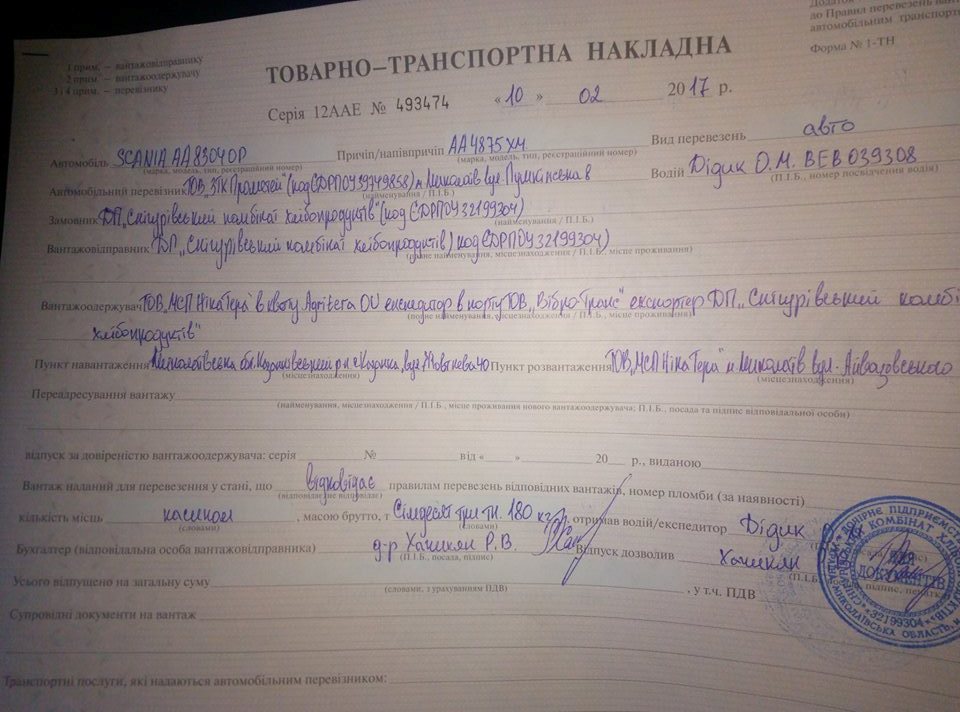 Додаток
до Правил перевезень
автомобільним транспорт
Форма № 1-ТН
1 прим. – вантажовідправнику
2 прим. – вантажоодержувачу
3 і 4 прим. – перевізнику
ТОВАРНО–ТРАНСПОРТНА НАКЛАДНА
Серія 12ААЕ № 493474 «10» 02 2017 р.
Автомобіль SCANIA AA8304OP Причіп/напівпричіп AA4875XM Вид перевезень авто
(марка, модель, тип, реєстраційний номер) (марка, модель, тип, реєстраційний номер)
Автомобільний перевізник ТОВ "ЗПК Прометей" (код ЄДРПОУ 39749858) м Миколаїв вул Пушкінська 8 Водій Дідик О.М. ВЕВ 039308
(найменування / П.І.Б.) (П.І.Б., номер посвідчення водія)
Замовник ДП „Снігурівський комбінат хлібопродуктів" (код ЄДРПОУ 32199304)
(найменування / П.І.Б.)
Вантажовідправник ДП „Снігурівський комбінат хлібопродуктів) код ЄДРПОУ 32199304)
(повне найменування, місцезнаходження / П.І.Б., місце проживання)
Вантажоодержувач ТОВ „МСП Ніка Тера" в квоту Agritera OU експедитор в порту ТОВ „Вібро-Транс" експортер ДП „Снігурівський комбі
(повне найменування, місцезнаходження / П.І.Б., місце проживання)
хлібопродуктів"
Пункт навантаження Миколаївська обл. Казанківський р-н с Казанка, вул Жовтнева 40 Пункт розвантаження ТОВ „МСП Ніка Тера" м. Миколаїв вул. Айвазовського
(місцезнаходження) (місцезнаходження)
Переадресування вантажу
(найменування, місцезнаходження / П.І.Б., місце проживання нового вантажоодержувача; П.І.Б., посада та підпис відповідальної особи)
відпуск за довіреністю вантажоодержувача: серія № від « » 20 р., виданою
Вантаж наданий для перевезення у стані, що відповідає правилам перевезень відповідних вантажів, номер пломби (за наявності)
(відповідає/не відповідає)
кількість місць насипом , масою брутто, т Сімдесят три тн. 180 кг , отримав водій/експедитор Дідик
(словами) (словами)
Бухгалтер (відповідальна особа вантажовідправника) д-р Ханикян Р.В. Відпуск дозволив Ханикян
(П.І.Б., посада, підпис) (П.І.Б. підпис, печатка
Усього відпущено на загальну суму , у т.ч. ПДВ
(словами, з урахуванням ПДВ)
Супровідні документи на вантаж
Транспортні послуги, які надаються автомобільним перевізником:
ДОЧІРНЄ ПІДПРИЄМСТВО
КОМБІНАТ
ДЛЯ
ДОКУМЕНТІВ
32199304
МИКОЛАЇВСЬКА ОБЛАСТЬ